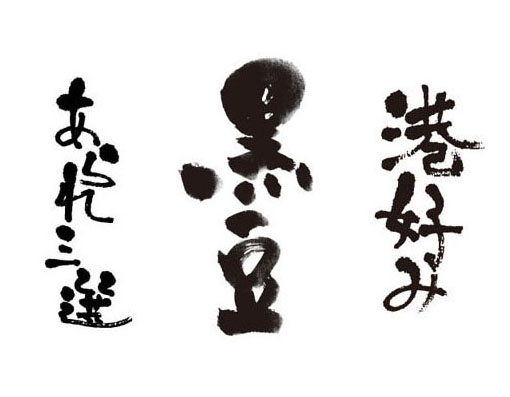 港好み
黒豆
あられ三選